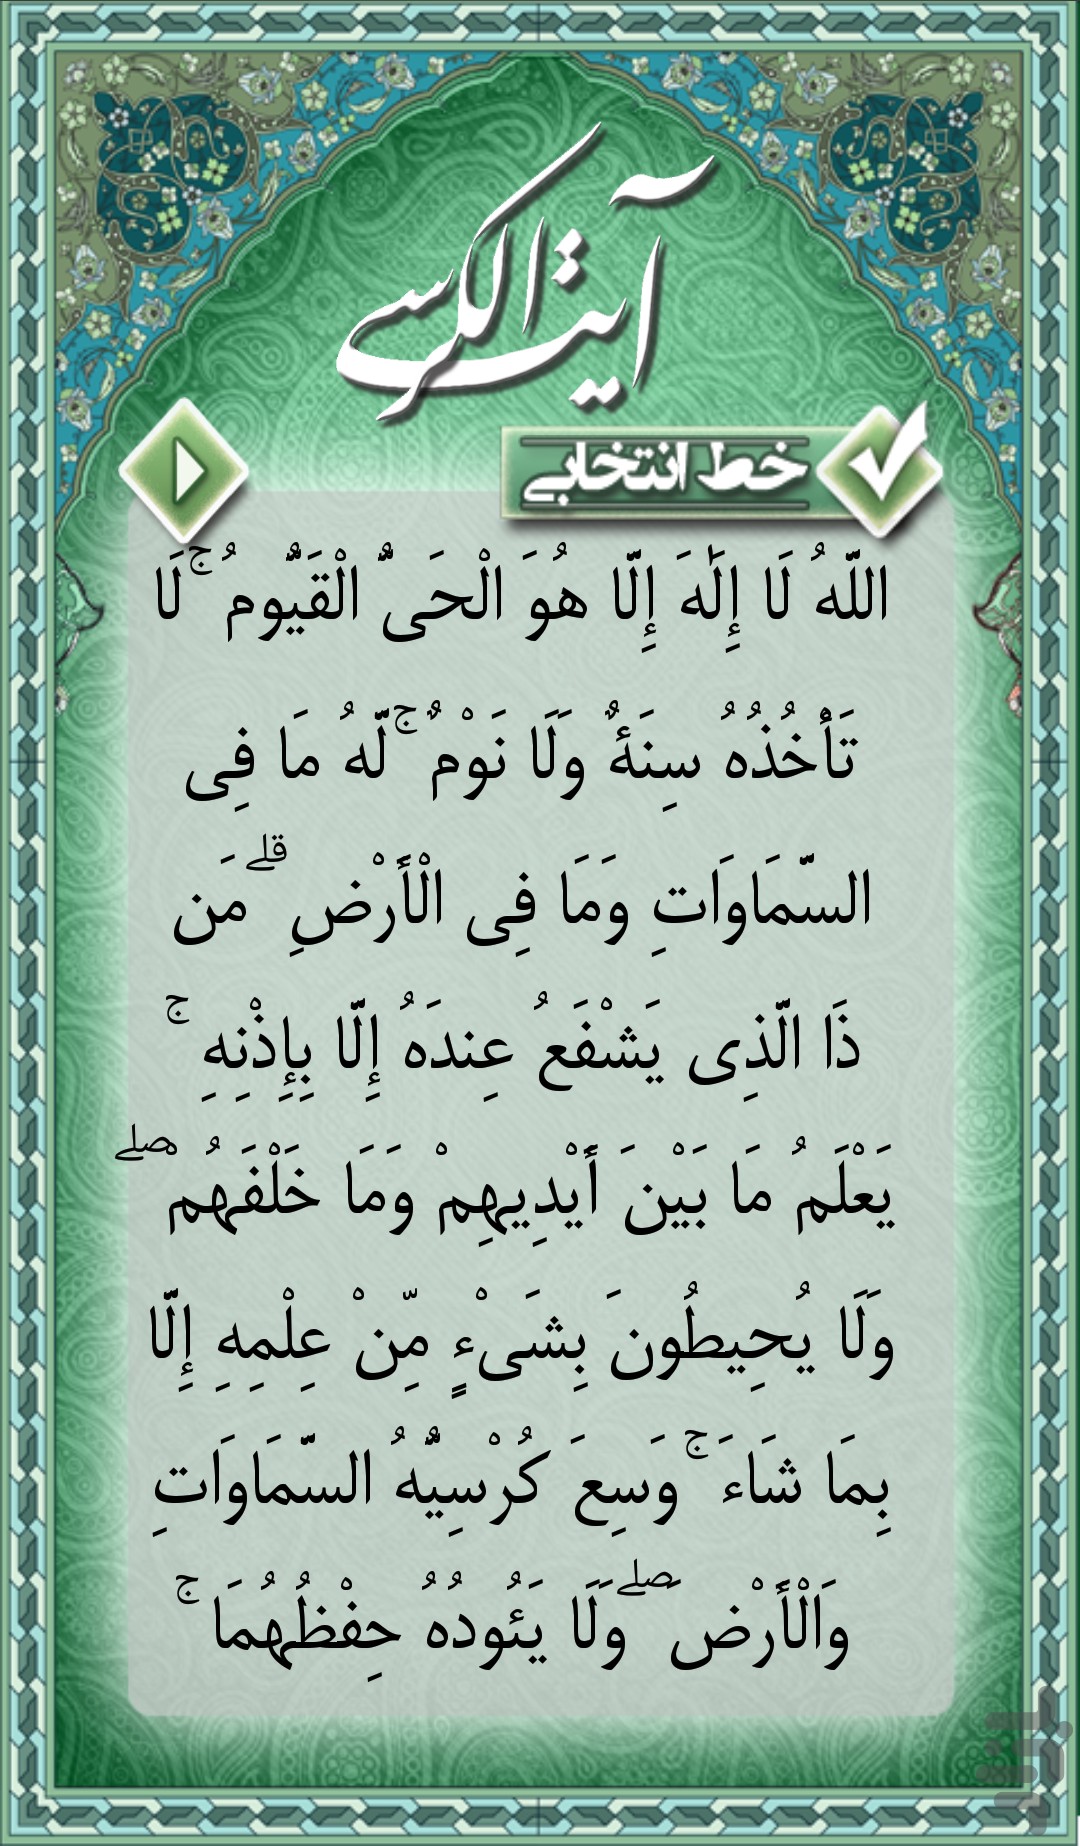 آیة الکرسی
خط انتخابی
اللَّهُ لَا إِلَٰهَ إِلَّا هُوَ الْحَىُّ الْقَيُّومُ ۚ لَا
تَأْخُذُهُ سِنَةٌ وَلَا نَوْمٌ ۚ لَّهُ مَا فِى
السَّمَاوَاتِ وَمَا فِى الْأَرْضِ ۗ مَن
ذَا الَّذِى يَشْفَعُ عِندَهُ إِلَّا بِإِذْنِهِ ۚ
يَعْلَمُ مَا بَيْنَ أَيْدِيهِمْ وَمَا خَلْفَهُمْ ۖ
وَلَا يُحِيطُونَ بِشَىْءٍ مِّنْ عِلْمِهِ إِلَّا
بِمَا شَاءَ ۚ وَسِعَ كُرْسِيُّهُ السَّمَاوَاتِ
وَالْأَرْضَ ۖ وَلَا يَئُودُهُ حِفْظُهُمَا ۚ